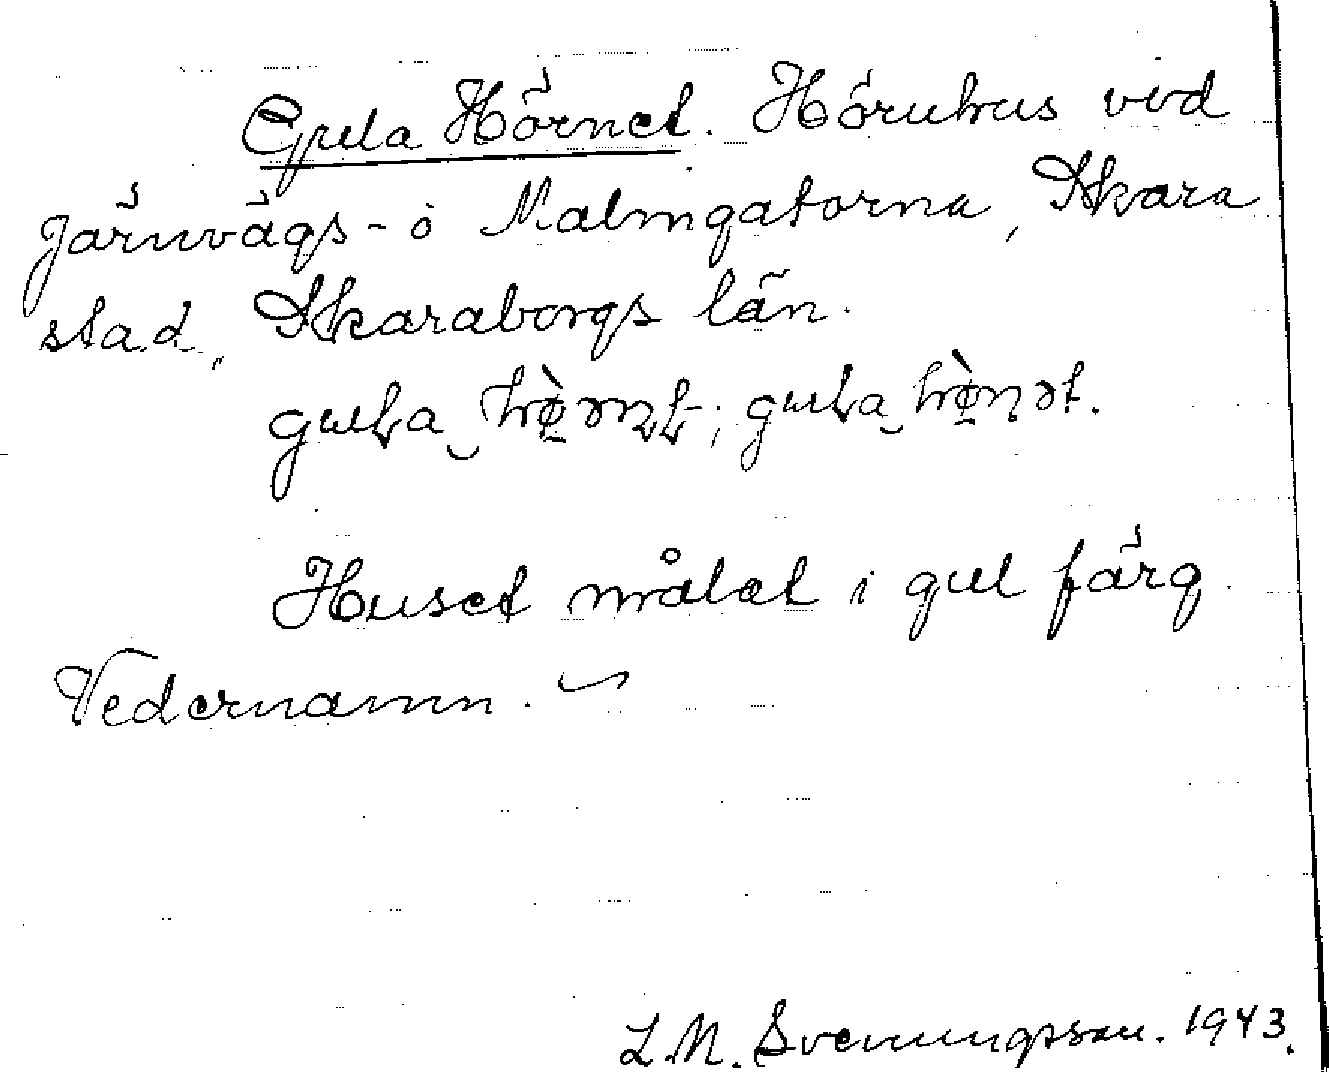 Gula Hörnet. Hörnhus vid
Järnvägs- o Malmgatorna, Skara
stad, Skaraborgs län.
Huset målat i gul färg.
Vedernamn.
L.M. Svenungsson. 1943.